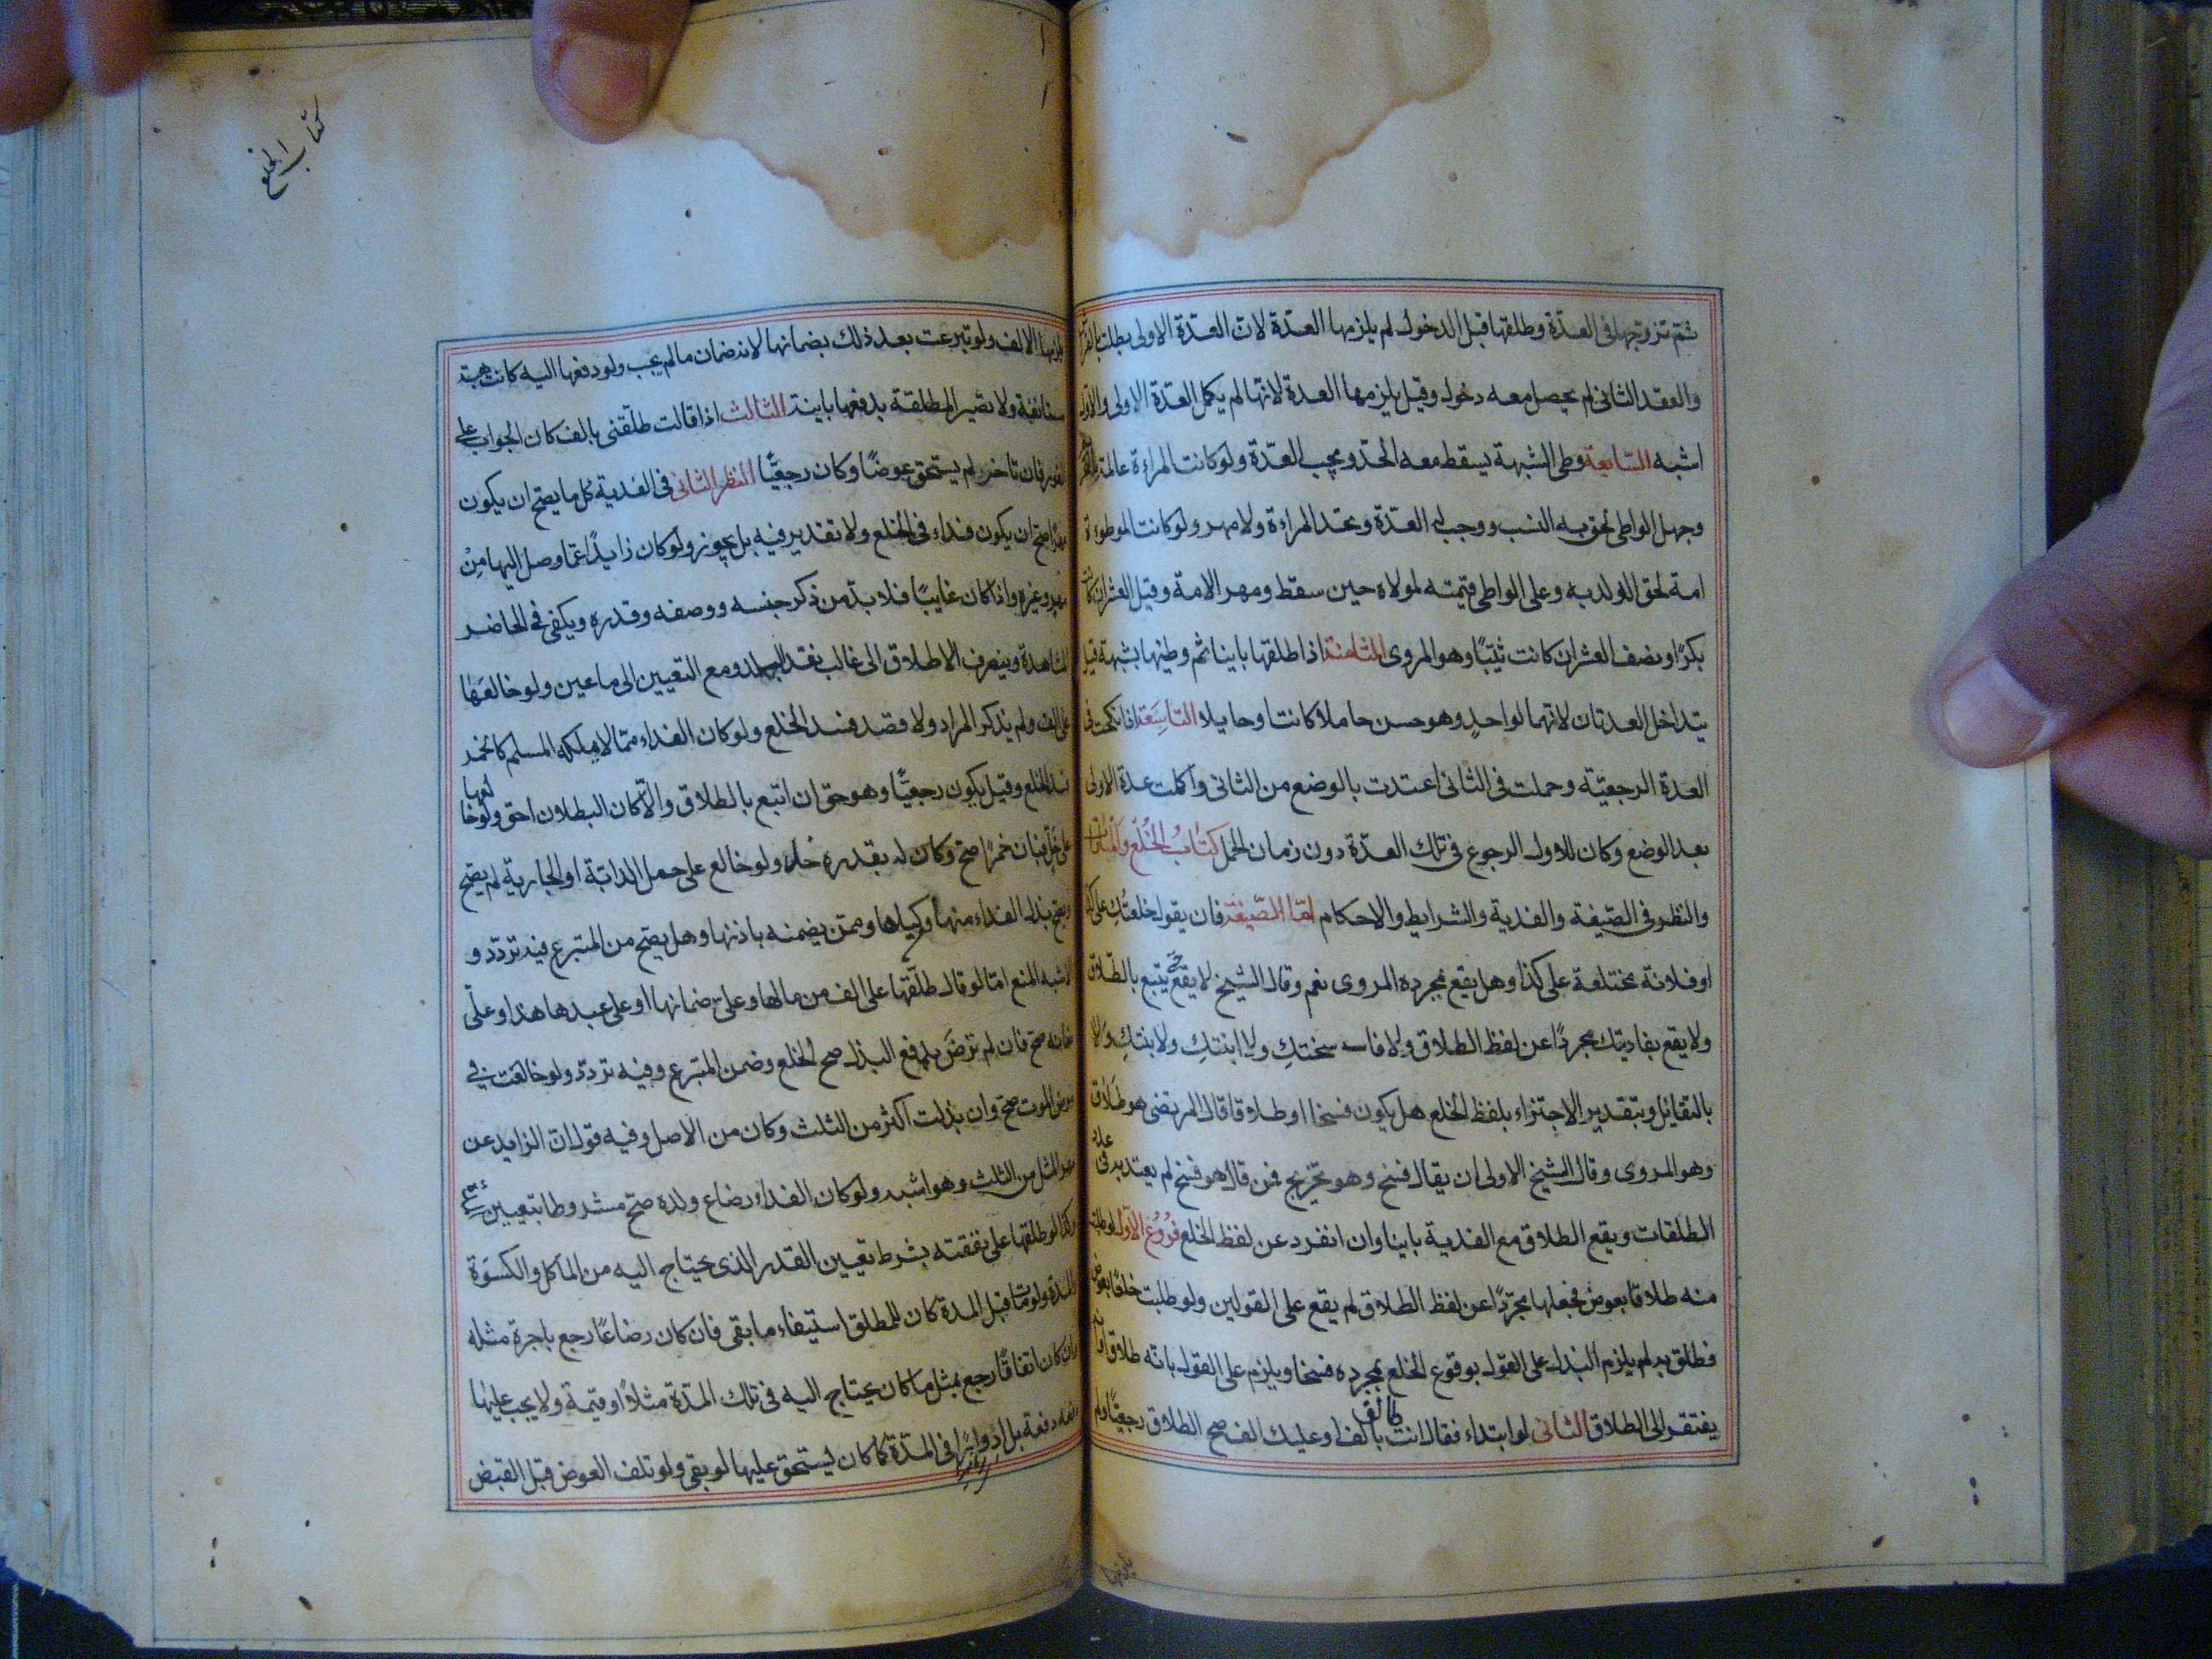 ثم تزوجها في العدة وطلقها قبل الدخول لم يلزمها العدة لان العدة الاولى بطلت بالفراش
والعقد الثاني لم يحصل معه دخول وقيل يلزمها العدة لانها لم يكمل العدة الاولى والاول
اشبه السابعة وطى الشبهة يسقط معه الحد ويجب العدة ولو كانت المراءة عالمة
وجهل الواطى لحق به النسب ووجب له العدة وتحد المراءة ولا مهر ولو كانت الموطوءة
امة لحق الولد به وعلى الواطى قيمته لمولاه حين سقط ومهر الامة وقيل العشر ان كانت
بكرًا ونصف العشر ان كانت ثيبًا وهو المروى الثامنة اذا طلقها باينا ثم وطيها بشبهة قيل
يتداخل العدتان لانهما لواحدٍ وهو حسن حاملا كانت او حايلا التاسعة اذا نكحت في
العدة الرجعية وحملت في الثاني اعتدت بالوضع من الثاني واكملت عدة الاولى
بعد الوضع وكان للاول الرجوع في تلك العدة دون زمان الحمل كتاب الخلع والمباراة
والنظر في الصيغة والفدية والشرايط والاحكام اما الصيغة فان يقول خلعتك على كذا
او فلانة مختلعة على كذا وهل يقع بمجرده المروى نعم وقال الشيخ لا يقع حتى يتبع بالطلاق
ولا يقع بفاديتك مجردًا عن لفظ الطلاق ولا فاسختكِ ولا ابنتكِ ولا بنتكِ ولا
بالتقائل وبتقدير الاجتزاء بلفظ الخلع هل يكون فسخا او طلاقا قال المرتضى هو طلاق
وهو المروى وقال الشيخ الاولى ان يقال فسخ وهو تخريج فمن قال هو فسخ لم يعتد به في عدد
الطلقات ويقع الطلاق مع الفدية باينا وان انفرد عن لفظ الخلع فروع الاول لو طلبت
منه طلاقا بعوض فخعلها مجردًا عن لفظ الطلاق لم يقع على القولين ولو طلبت خلعًا بعوض
فطلق به لم يلزم البذل على القول بوقوع الخلع بمجرده فسخا ويلزم على القول بانه طلاق او انه
يفتقر الى الطلاق الثاني لو ابتداء فقال انت طالق بالف او عليك الف صح الطلاق رجعيًا ولم
يلزمها
كتاب الخلع
يلزمها الالف ولو تبرعت بعد ذلك بضمانها لانه ضمان ما لم يجب ولو دفعها اليه كانت هبة
مستانفة ولا تصير المطلقة بدفعها باينة الثالث اذا قالت طلقنى بالف كان الجواب على
الفور فان تاخر لم يستحق عوضًا وكان رجعيًا النظر الثاني في الفدية كل ما يصح ان يكون
مهرًا صح ان يكون فداء في الخلع ولا تقدير فيه بل يجوز ولو كان زايدًا عما وصل اليها مِنْ
مهر وغيره واذا كان غايبًا فلا بد من ذكر جنسه ووصفه وقدره ويكفى في الحاضر
المشاهدة وينصرف الاطلاق الى غالب نقد البلد ومع التعيين الى ما عين ولو خالعها
على الف ولم يذكر المراد ولا قصد فسد الخلع ولو كان الفداء مما لا يملكه المسلم كالخمر
فسد الخلع وقيل يكون رجعيًا وهو حق ان اتبع بالطلاق والا كان البطلان احق ولو خالعها
على خل فبان خمرًا صح وكان له بقدره خل ولو خالع على حمل الدابة او الجارية لم يصح
ويصح بذل الفداء منها ووكيلها وممن يضمنه باذنها وهل يصح من المتبرع فيه تردد و
الاشبه المنع اما لو قال طلقها على الف من مالها وعلى ضمانها او على عبدها هذا وعلى
ضمانه صح فان لم ترضَ بدفع البذل صح الخلع وضمن المتبرع وفيه تردد ولو خالعت في
مرض الموت صح وان بذلت اكثر من الثلث وكان من الاصل وفيه قول ان الزايد عن
مهر المثل من الثلث وهو اشبه ولو كان الفداء رضاع ولده صح مشروطا بتعيين
وكذا لو طلقها على نفقته بشرط تعيين القدر الذي يحتاج اليه من الماكل والكسوة
المدة ولو مات قبل المدة كان للمطلق استيفاء ما بقى فان كان رضاعًا رجع باجرة مثله
وان كان انفاقًا رجع بمثل ما كان يحتاج اليه في تلك المدة مثلًا او قيمة ولا يجب عليها
دفعه دفعة بل ادوارًا في المدة كما كان يستحق عليها لو بقى ولو تلف العوض قبل القبض